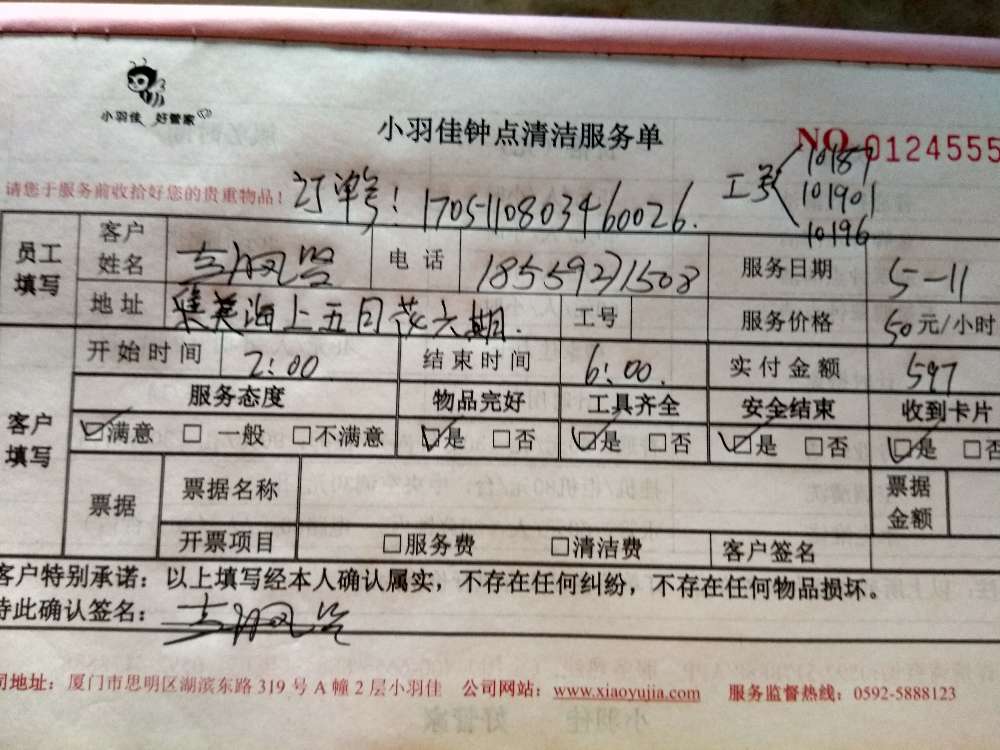 小羽佳 好管家
小羽佳钟点清洁服务单
NO 0124555
请您于服务前收拾好您的贵重物品！
订单号：1705110803460026.
工号 10187
101901
10196
员工填写
客户姓名
电话 18559271508
服务日期 5-11
地址 集美海上五月花六期.
工号
服务价格 50元/小时
客户填写
开始时间 2:00
结束时间 6:00.
实付金额 597
服务态度 物品完好 工具齐全 安全结束 收到卡片
☑满意 □一般 □不满意 ☑是 □否 ☑是 □否 ☑是 □否 ☑是 □否
票据 票据名称 票据金额
开票项目 □服务费 □清洁费 客户签名
客户特别承诺：以上填写经本人确认属实，不存在任何纠纷，不存在任何物品损坏。
特此确认签名：
司地址：厦门市思明区湖滨东路 319 号 A 幢 2 层小羽佳 公司网站：www.xiaoyujia.com 服务监督热线：0592-5888123